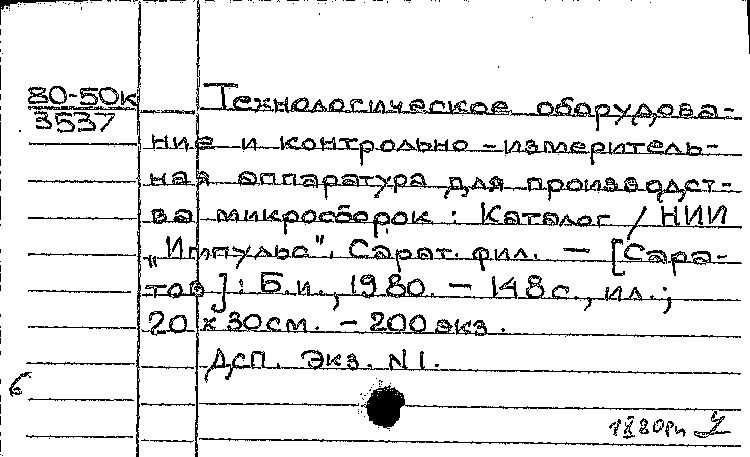 80-50к
3537
Технологическое оборудова-
ние и контрольно-измеритель-
ная аппаратура для производст-
ва микросборок : Каталог / НИИ
„Импульс". Сарат. фил. — [Сара-
тов] : Б.и., 1980. — 148 с., ил.;
20 х 30 см. — 200 экз.
ДСП. Экз. N 1.
6